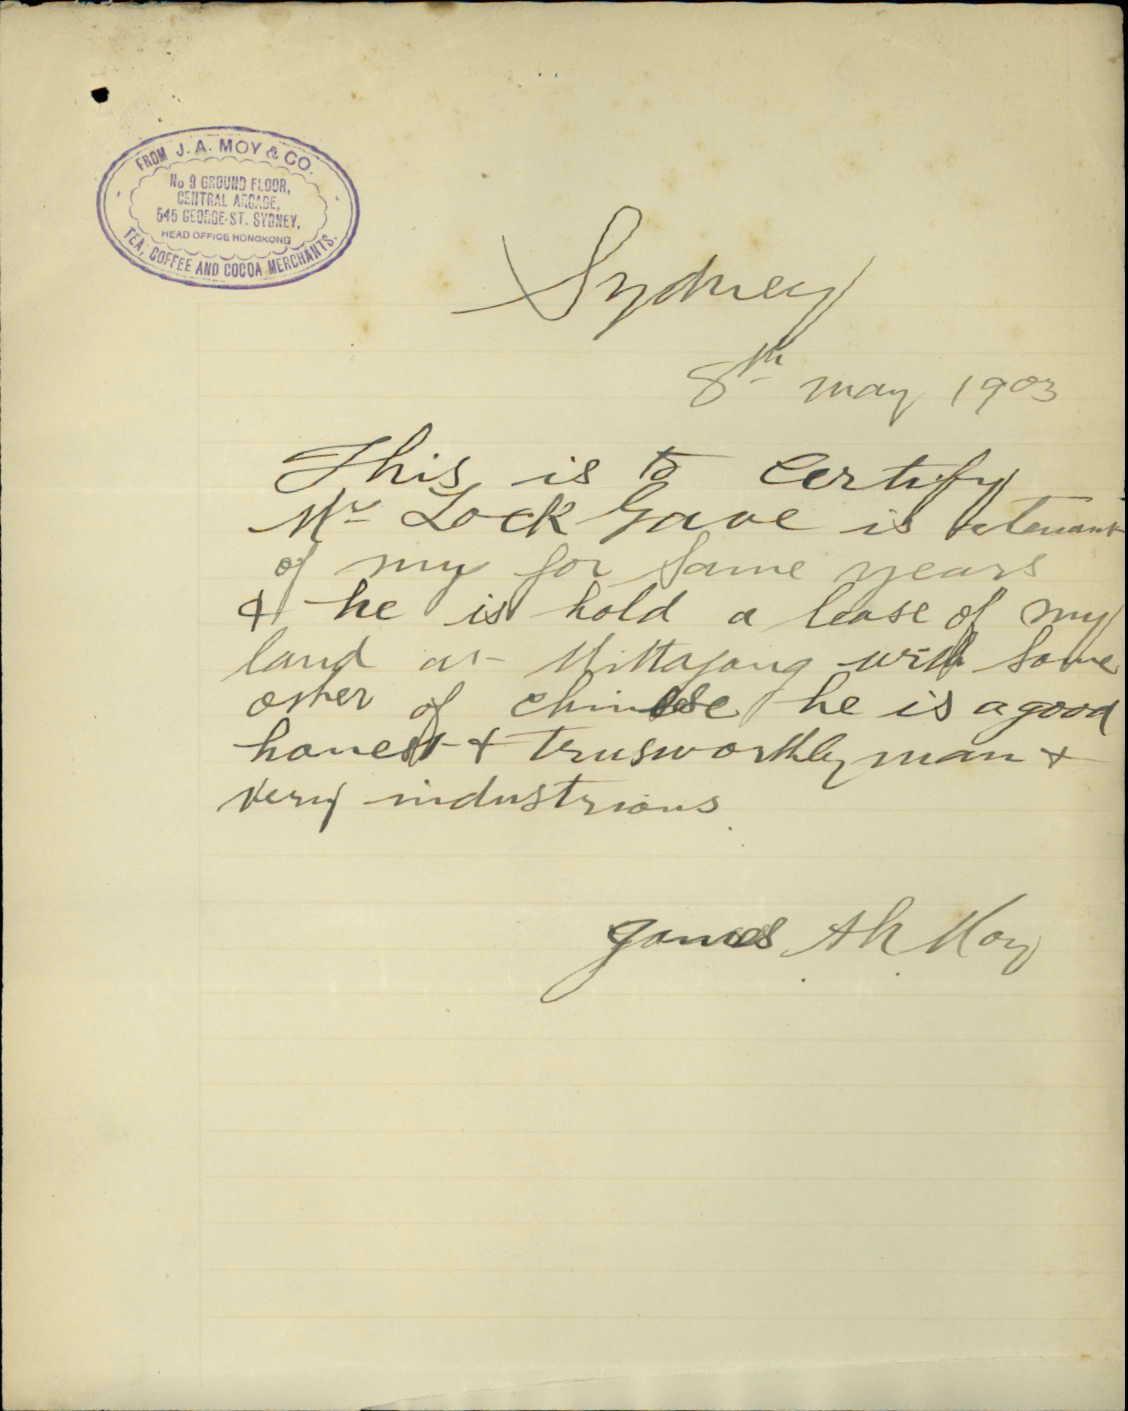 FROM J. A. MOY & CO.
No 9 GROUND FLOOR,
CENTRAL ARCADE,
545 GEORGE-ST. SYDNEY,
HEAD OFFICE HONGKONG
TEA, COFFEE AND COCOA MERCHANTS.
Sydney
8th may 1903
This is to certify
Mr Lock Gave is a tenant
of my for Same years
& he is hold a lease of my
land at Mittagong with Some
other of chinese he is a good
honest & trusworthly man &
very industrious
James Ah Moy